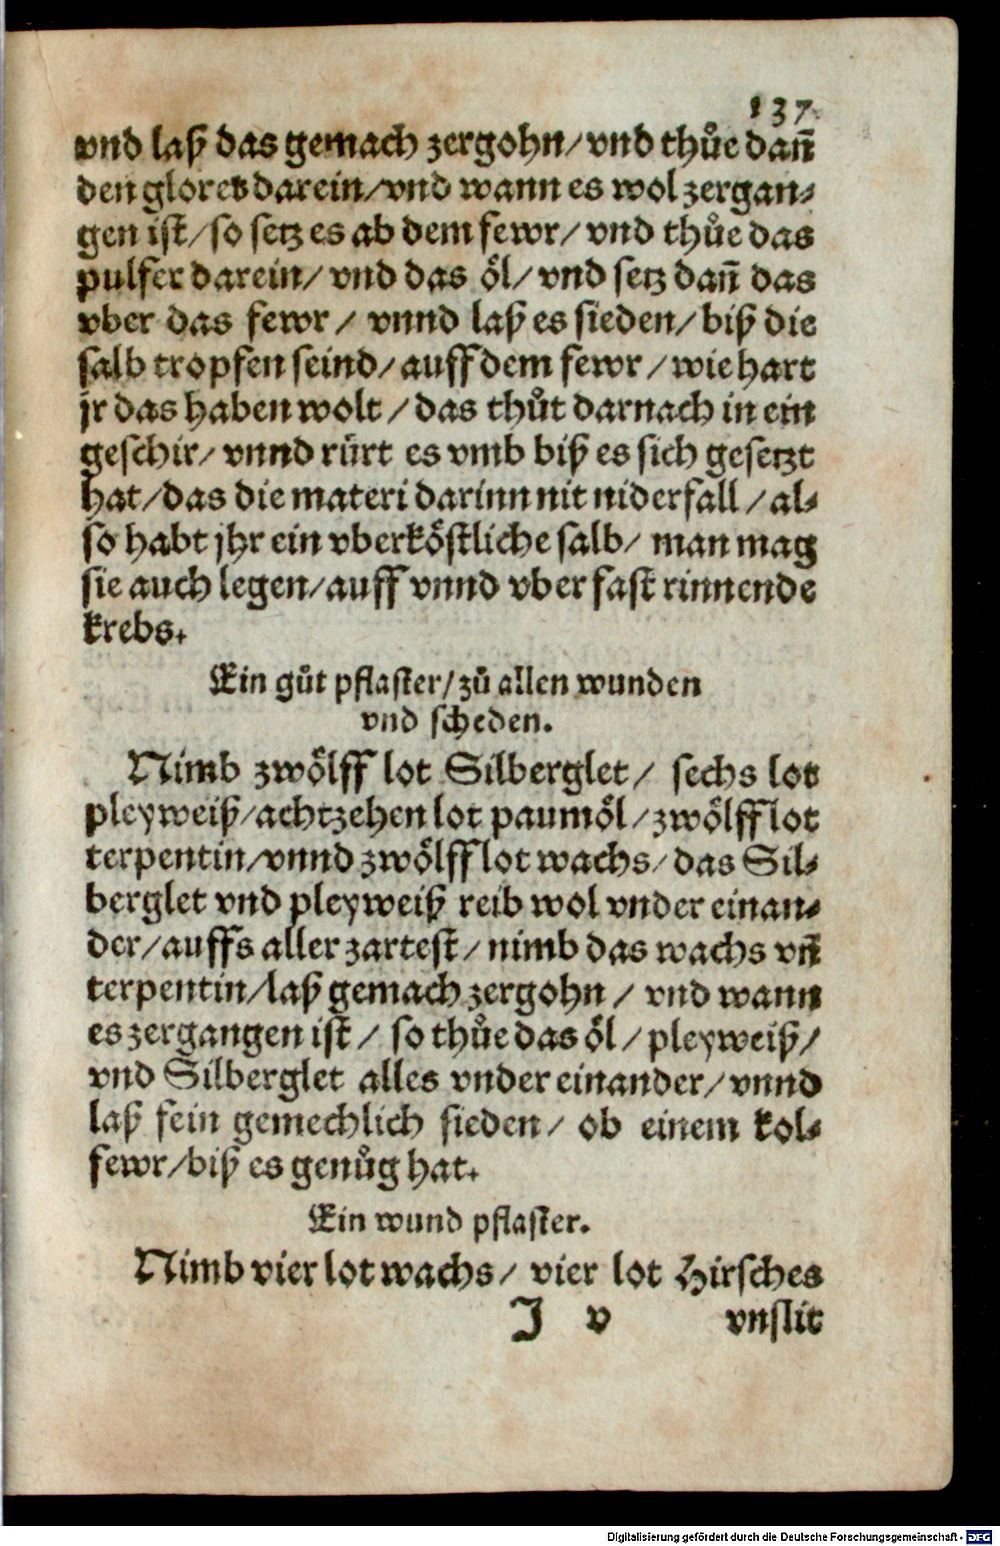 137.
vnd laß das gemach zergohn/vnd thuͤe dañ
den gloret darein/vnd wann es wol zergan⸗
gen ist/so setz es ab dem fewr/vnd thuͤe das
pulfer darein/vnd das oͤl/vnd setz dañ das
vber das fewr/ vnnd laß es sieden/biß die
salb tropfen seind/auff dem fewr/wie hart
jr das haben wolt/das thuͦt darnach in ein
geschir/vnnd ruͤrt es vmb biß es sich gesetzt
hat/das die materi darinn nit niderfall/al⸗
so habt jhr ein vberkoͤstliche salb/ man mag
sie auch legen/auff vnnd vber fast rinnende
krebs.
Ein guͦt pflaster/zuͦ allen wunden
vnd scheden.
Nimb zwoͤlff lot Silberglet/ sechs lot
pleyweiß/achtzehen lot paumoͤl/zwoͤlff lot
terpentin/vnnd zwoͤlff lot wachs/das Sil⸗
berglet vnd pleyweiß reib wol vnder einan⸗
der/auffs aller zartest/nimb das wachs vñ
terpentin/laß gemach zergohn/ vnd wann
es zergangen ist/ so thuͤe das oͤl/pleyweiß/
vnd Silberglet alles vnder einander/vnnd
laß fein gemechlich sieden/ ob einem kol⸗
fewr/biß es genuͦg hat.
Ein wund pflaster.
Nimb vier lot wachs/ vier lot Hirsches
J v vnslit
Digitalisierung gefördert durch die Deutsche Forschungsgemeinschaft - DFG